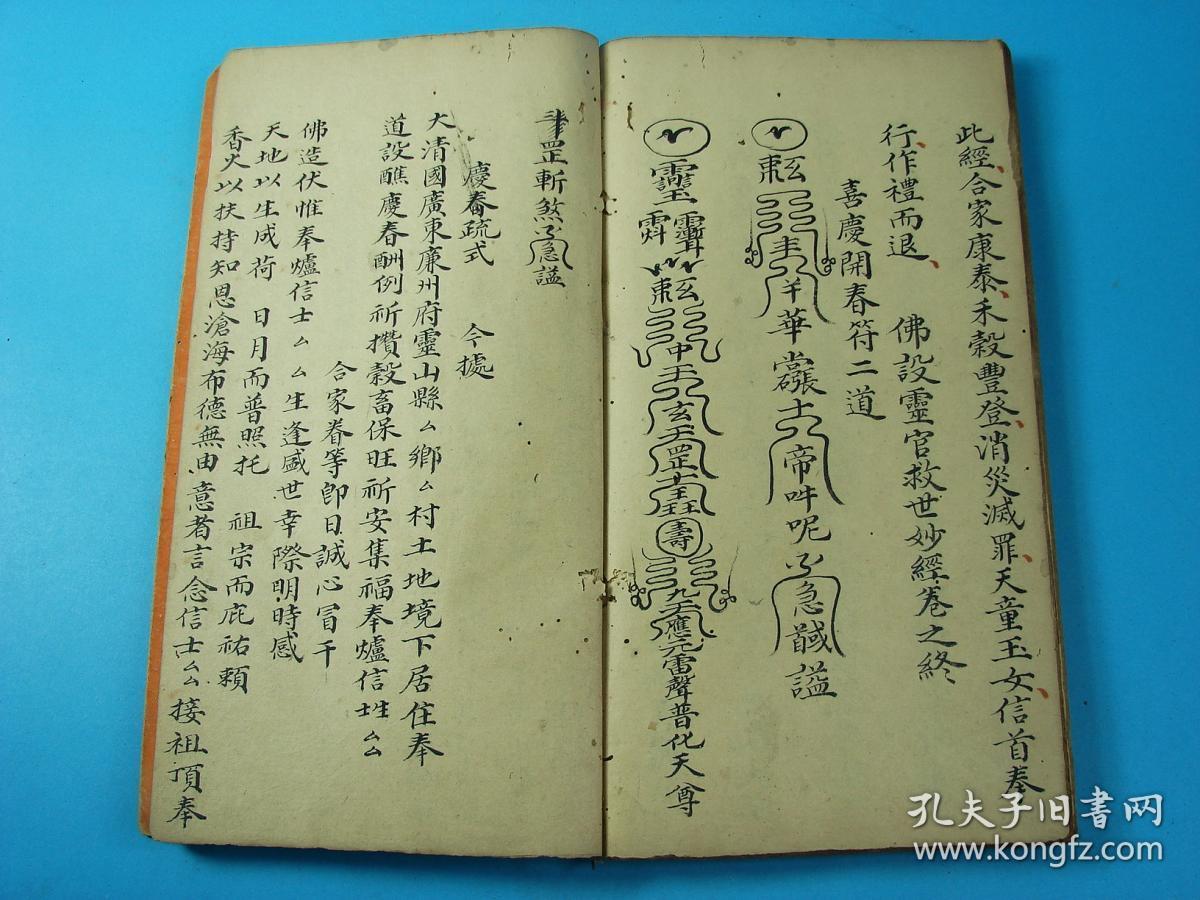 此經合家康泰禾穀豐登消災滅罪天童玉女信首奉
行作禮而退 佛設靈官救世妙經卷之終
喜慶開春符二道
華 帝吽呢 急 謚
中 玄 罡 壽 九天應元雷聲普化天尊
罡斬煞 急謚
慶春疏式 今據
大清國廣東廉州府靈山縣厶鄉厶村土地境下居住奉
道設醮慶春酬例祈攢穀畜保旺祈安集福奉爐信士厶厶
合家眷等即日誠心冒干
佛造伏惟奉爐信士厶厶生逢盛世幸際明時感
天地以生成荷 日月而普照托 祖宗而庇祐賴
香火以扶持知恩滄海布德無由意者言念信士厶厶接祖頂奉
孔夫子旧书网
www.kongfz.com